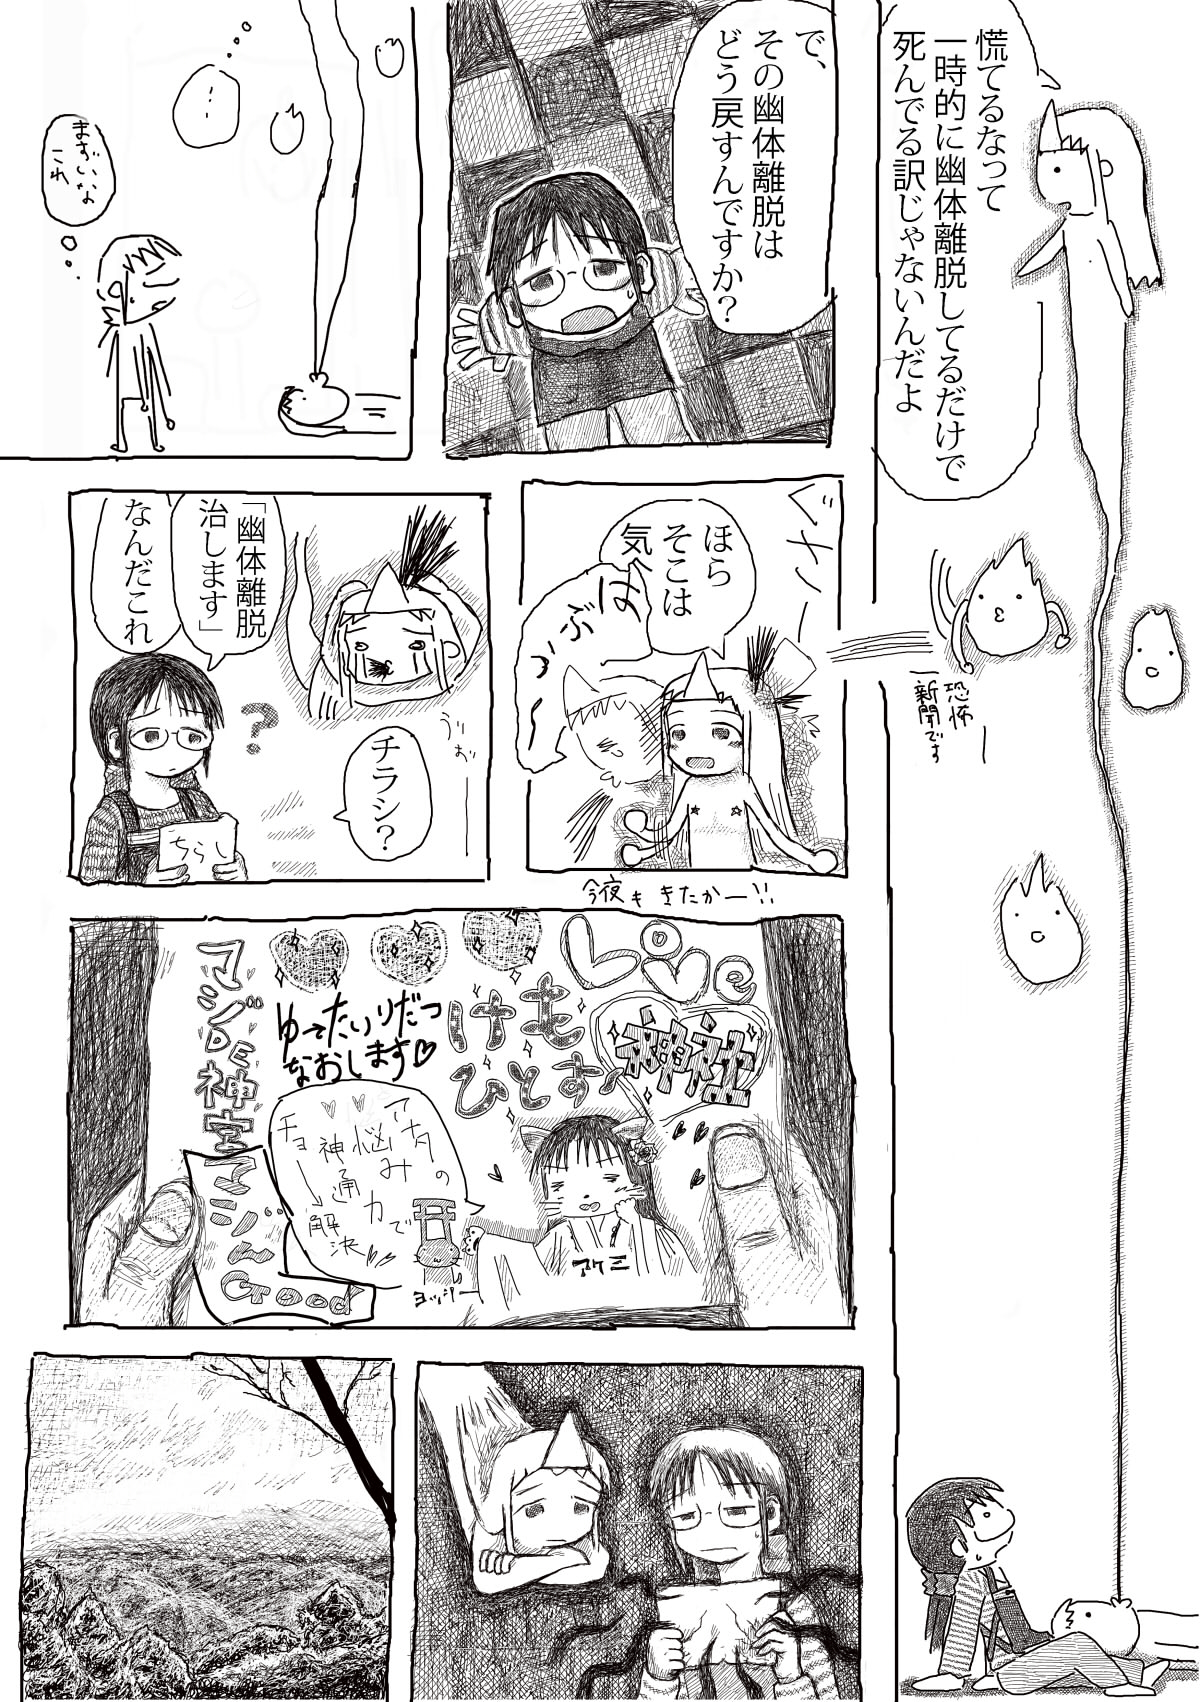 慌てるなって
一時的に幽体離脱してるだけで
死んでる訳じゃないんだよ
恐怖
新聞です
で、
その幽体離脱は
どう戻すんですか?
…
まずいな
これ
ぐさっ
ほら
そこは
気合
はぶっ
今夜もきたかー!!
「幽体離脱
治します」
なんだこれ
?
うぉぉ
チラシ?
ちらし
Love
神社
けも
ひとす
ゆーたいりだつ
なおします♡
マジDE神宮
マジん
Good
アナタの
悩み
神通力で
チョー
解決
アケミ
ヨッシー